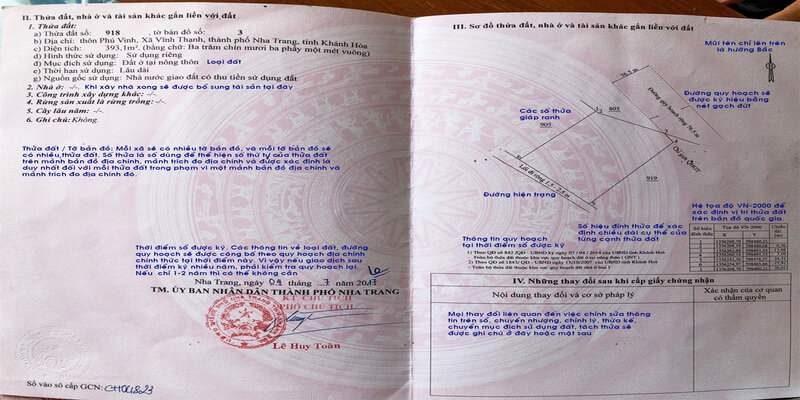 II. Thửa đất, nhà ở và tài sản khác gắn liền với đất
1. Thửa đất:
a) Thửa đất số: 918 , tờ bản đồ số: 3
b) Địa chỉ: thôn Phú Vinh, Xã Vĩnh Thạnh, thành phố Nha Trang, tỉnh Khánh Hòa
c) Diện tích: 393,1m², (bằng chữ: Ba trăm chín mươi ba phẩy một mét vuông)
d) Hình thức sử dụng: Sử dụng riêng
đ) Mục đích sử dụng: Đất ở tại nông thôn Loại đất
e) Thời hạn sử dụng: Lâu dài
g) Nguồn gốc sử dụng: Nhà nước giao đất có thu tiền sử dụng đất
2. Nhà ở: -/- Khi xây nhà xong sẽ được bổ sung tài sản tại đây
3. Công trình xây dựng khác: -/-
4. Rừng sản xuất là rừng trồng: -/-
5. Cây lâu năm: -/-
6. Ghi chú: Không
Thửa đất / Tờ bản đồ: Mỗi xã sẽ có nhiều tờ bản đồ, và mỗi tờ bản đồ sẽ
có nhiều thửa đất. Số thửa là số dùng để thể hiện số thứ tự của thửa đất
trên mảnh bản đồ địa chính, mảnh trích đo địa chính và được xác định là
duy nhất đối với mỗi thửa đất trong phạm vi một mảnh bản đồ địa chính và
mảnh trích đo địa chính đó.
Thời điểm sổ được ký. Các thông tin về loại đất, đường
quy hoạch sẽ được công bố theo quy hoạch địa chính
chính thức tại thời điểm này. Vì vậy nếu giao dịch sau
thời điểm ký nhiều năm, phải kiểm tra quy hoạch lại.
Nếu chỉ 1-2 năm thì có thể không cần
Nha Trang, ngày
TM. ỦY BAN NHÂN DÂN THÀNH PHỐ NHA TRANG
KT. CHỦ TỊCH
PHÓ CHỦ TỊCH
Lê Huy Toàn
Số vào sổ cấp GCN: CH01823
III. Sơ đồ thửa đất, nhà ở và tài sản khác gắn liền với đất
Mũi tên chỉ lên trên
là hướng Bắc
Đường quy hoạch sẽ
được ký hiệu bằng
nét gạch đứt
Các số thửa
giáp ranh
905
803
919
Đường hiện trạng
Hệ tọa độ VN-2000 để
xác định vị trí thửa đất
trên bản đồ quốc gia.
Số hiệu đỉnh thửa để xác
định chiều dài cụ thể của
từng cạnh thửa đất
Thông tin quy hoạch
tại thời điểm sổ được ký
Số hiệu
đỉnh thửa
Tọa độ VN-2000
X Y
IV. Những thay đổi sau khi cấp giấy chứng nhận
Nội dung thay đổi và cơ sở pháp lý
Xác nhận của cơ quan
có thẩm quyền
Mọi thay đổi liên quan đến việc chỉnh sửa thông
tin trên sổ, chuyển nhượng, chỉnh lý, thừa kế,
chuyển mục đích sử dụng đất, tách thửa sẽ
được ghi chú ở đây hoặc mặt sau